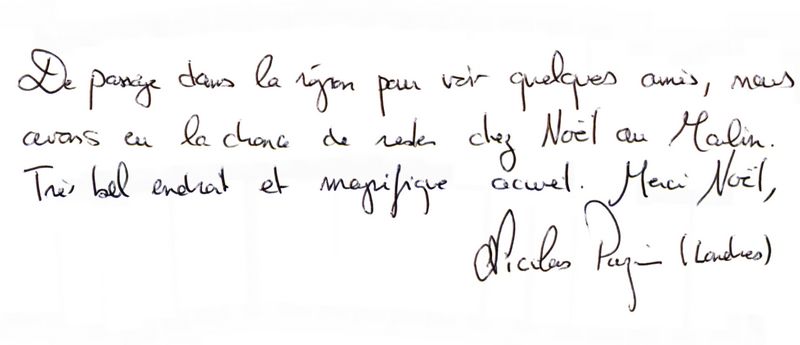 De passage dans la région pour voir quelques amis, nous
avons eu la chance de rester chez Noël au Moulin.
Très bel endroit et magnifique accueil. Merci Noël,
Nicolas (Londres)